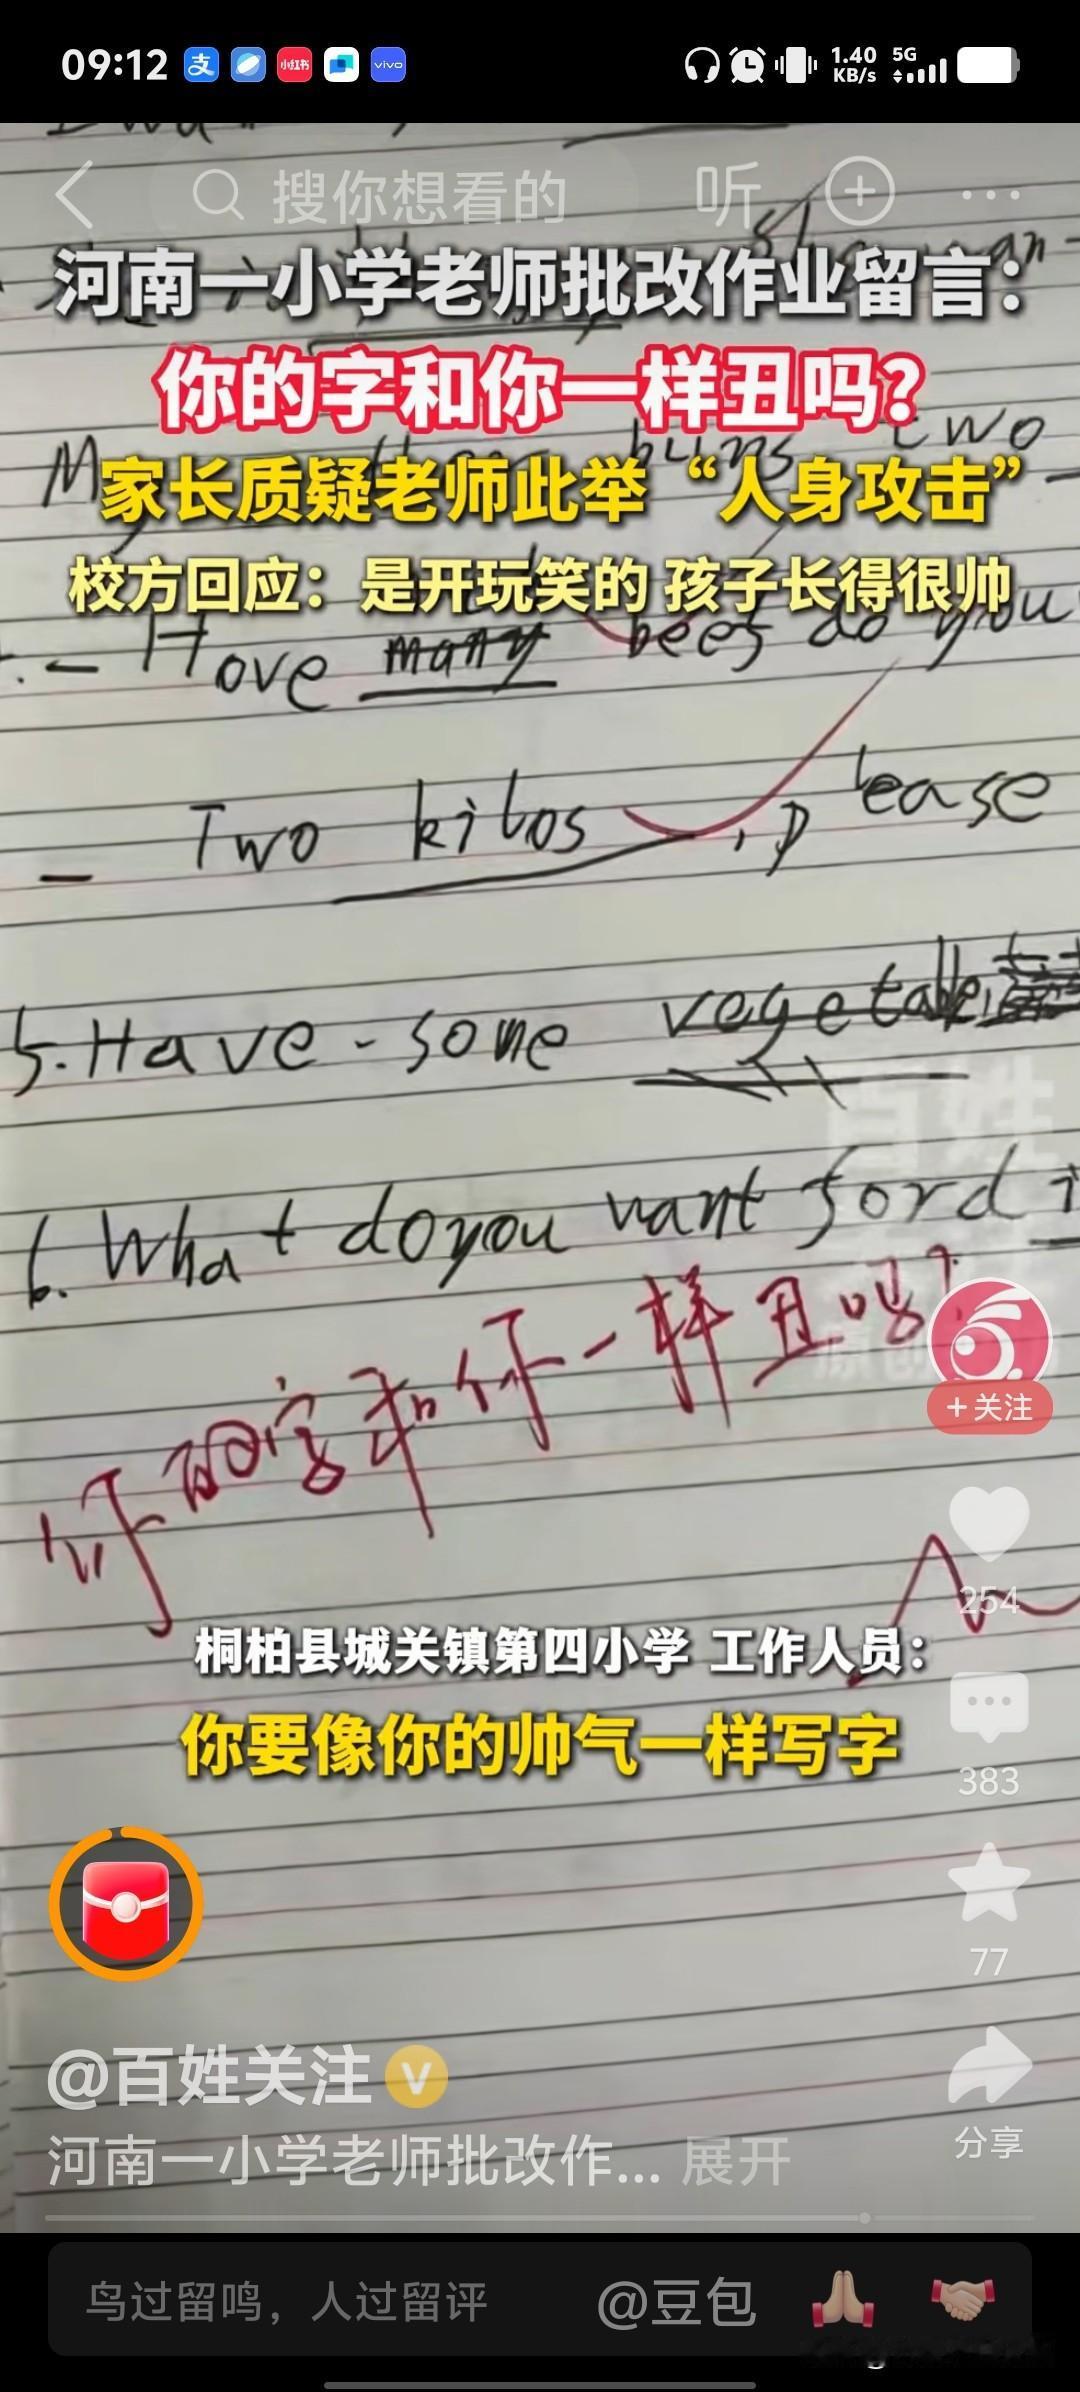 09:12 支 小红书 vivo 1.40 KB/s 5G
搜你想看的 听
河南一小学老师批改作业留言：
你的字和你一样丑吗？
家长质疑老师此举“人身攻击”
two
校方回应：是开玩笑的 孩子长得很帅
- Hove many bees do you
- Two kilos , please
5. Have - some vegetable
百姓
6. What do you want for di
你的字和你一样丑吗?
原创
+关注
254
桐柏县城关镇第四小学 工作人员：
你要像你的帅气一样写字
383
77
@百姓关注 V
分享
河南一小学老师批改作... 展开
鸟过留鸣，人过留评 @豆包